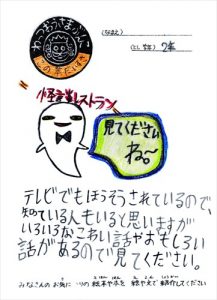 わっつおうがまかんに
この本だいすき
(なまえ)
(とし・学年) 2年
怪談レストラン
見てください
ね〜
テレビでもほうそうされているので、
知っている人もいると思いますが
いろいろなこわい話やおもしろい
話があるので見てください。
みなさんのお気に入りの絵本や本を 絵や文で紹介してください